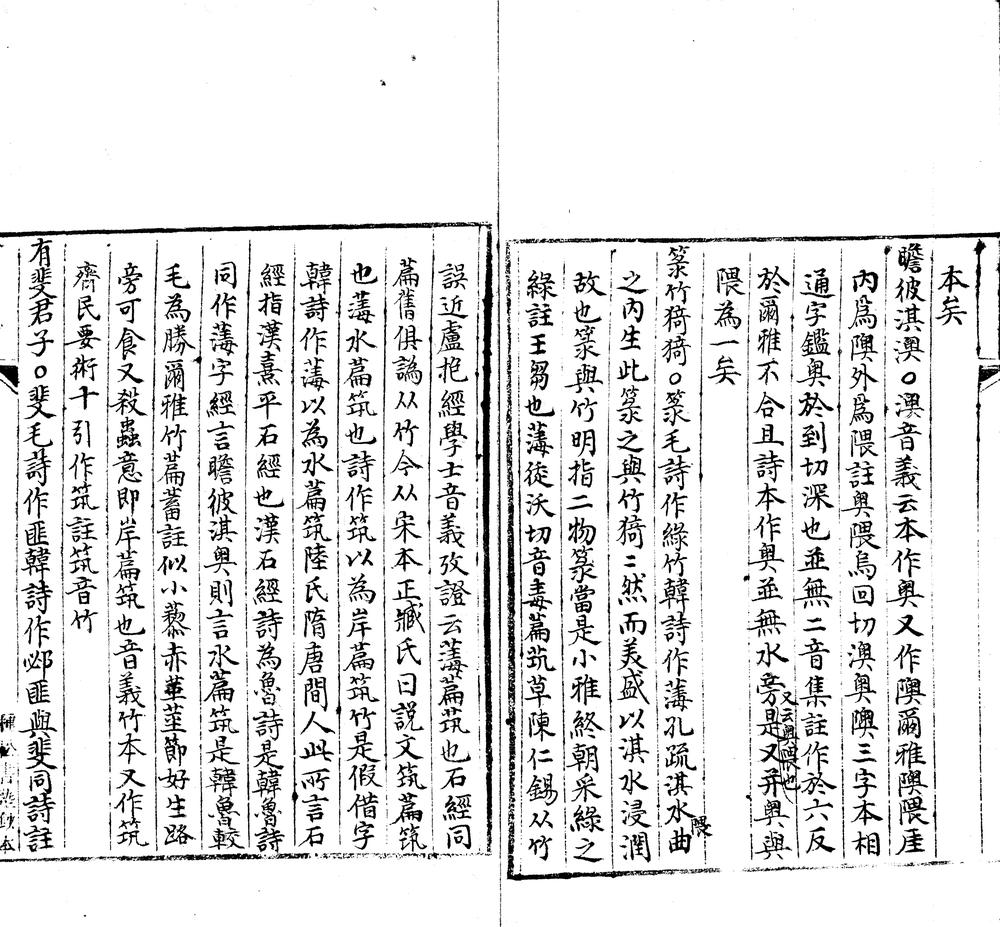 本矣
瞻彼淇澳○澳音義云本作奧又作隩爾雅隩隈厓
內爲隩外爲隈註奧隈烏回切澳奧隩三字本相
通字鑑奧於到切深也並無二音集註作於六反
於爾雅不合且詩本作奧並無水旁是又并奧與
又云奧隈也
隈為一矣
菉竹猗猗○菉毛詩作綠竹韓詩作薄孔疏淇水曲
隈
之內生此菉之與竹猗〻然而美盛以淇水浸潤
故也菉與竹明指二物菉當是小雅終朝采綠之
綠註王芻也薄徒沃切音毒萹茿草陳仁錫从竹
誤近盧抱經學士音義攷證云薄萹茿也石經同
萹舊俱譌从竹今从宋本正臧氏曰說文筑萹筑
也薄水萹筑也詩作筑以為岸萹筑竹是假借字
韓詩作薄以為水萹筑陸氏隋唐間人此所言石
經指漢熹平石經也漢石經詩為魯詩是韓魯詩
同作薄字經言瞻彼淇奧則言水萹筑是韓魯較
毛為勝爾雅竹萹蓄註似小藜赤莖莖節好生路
旁可食又殺蟲意即岸萹筑也音義竹本又作筑
齊民要術十引作筑註筑音竹
有斐君子○斐毛詩作匪韓詩作邲匪與斐同詩註